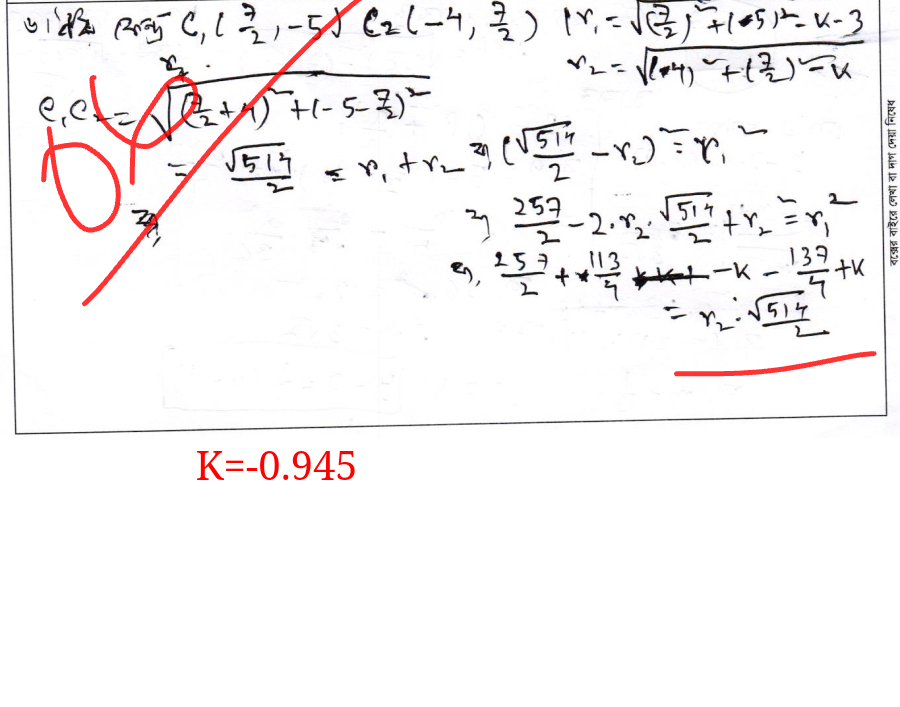 C₁(7/2, -5) C₂(-4, 7/2) | r₁ = √((7/2)² + (-5)² - K - 3)
r₂ = √((-4)² + (7/2)² - K)
C₁C₂ = √((7/2 + 4)² + (-5 - 7/2)²)
= √514/2 = r₁ + r₂ বা, (√514/2 - r₂)² = r₁²
বা,
বা, 257/2 - 2·r₂·√514/2 + r₂² = r₁²
বা, 257/2 + 113/4 - K - 137/4 + K
= r₂·√514/2
K=-0.945
বক্সের বাইরে লেখা বা দাগ দেয়া নিষেধ